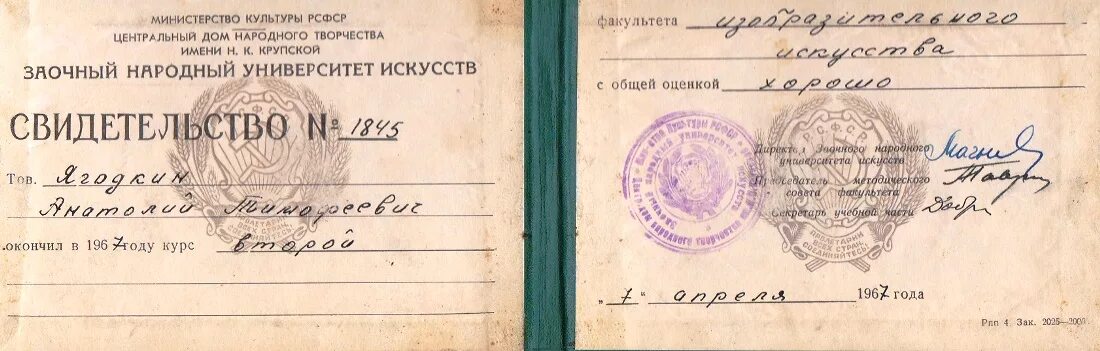 МИНИСТЕРСТВО КУЛЬТУРЫ РСФСР
ЦЕНТРАЛЬНЫЙ ДОМ НАРОДНОГО ТВОРЧЕСТВА
ИМЕНИ Н. К. КРУПСКОЙ
ЗАОЧНЫЙ НАРОДНЫЙ УНИВЕРСИТЕТ ИСКУССТВ
СВИДЕТЕЛЬСТВО № 1845
Тов. Ягодкин
Анатолий Тимофеевич
окончил в 1967 году курс второй
РСФСР
ПРОЛЕТАРИИ
ВСЕХ СТРАН,
СОЕДИНЯЙТЕСЬ!
факультета изобразительного
искусства
с общей оценкой хорошо
РСФСР
Директор Заочного народного
университета искусств
Председатель методического
совета факультета
Секретарь учебной части
ПРОЛЕТАРИИ
ВСЕХ СТРАН,
СОЕДИНЯЙТЕСЬ!
„7" апреля 1967 года
Рпп 4. Зак. 2025—2000